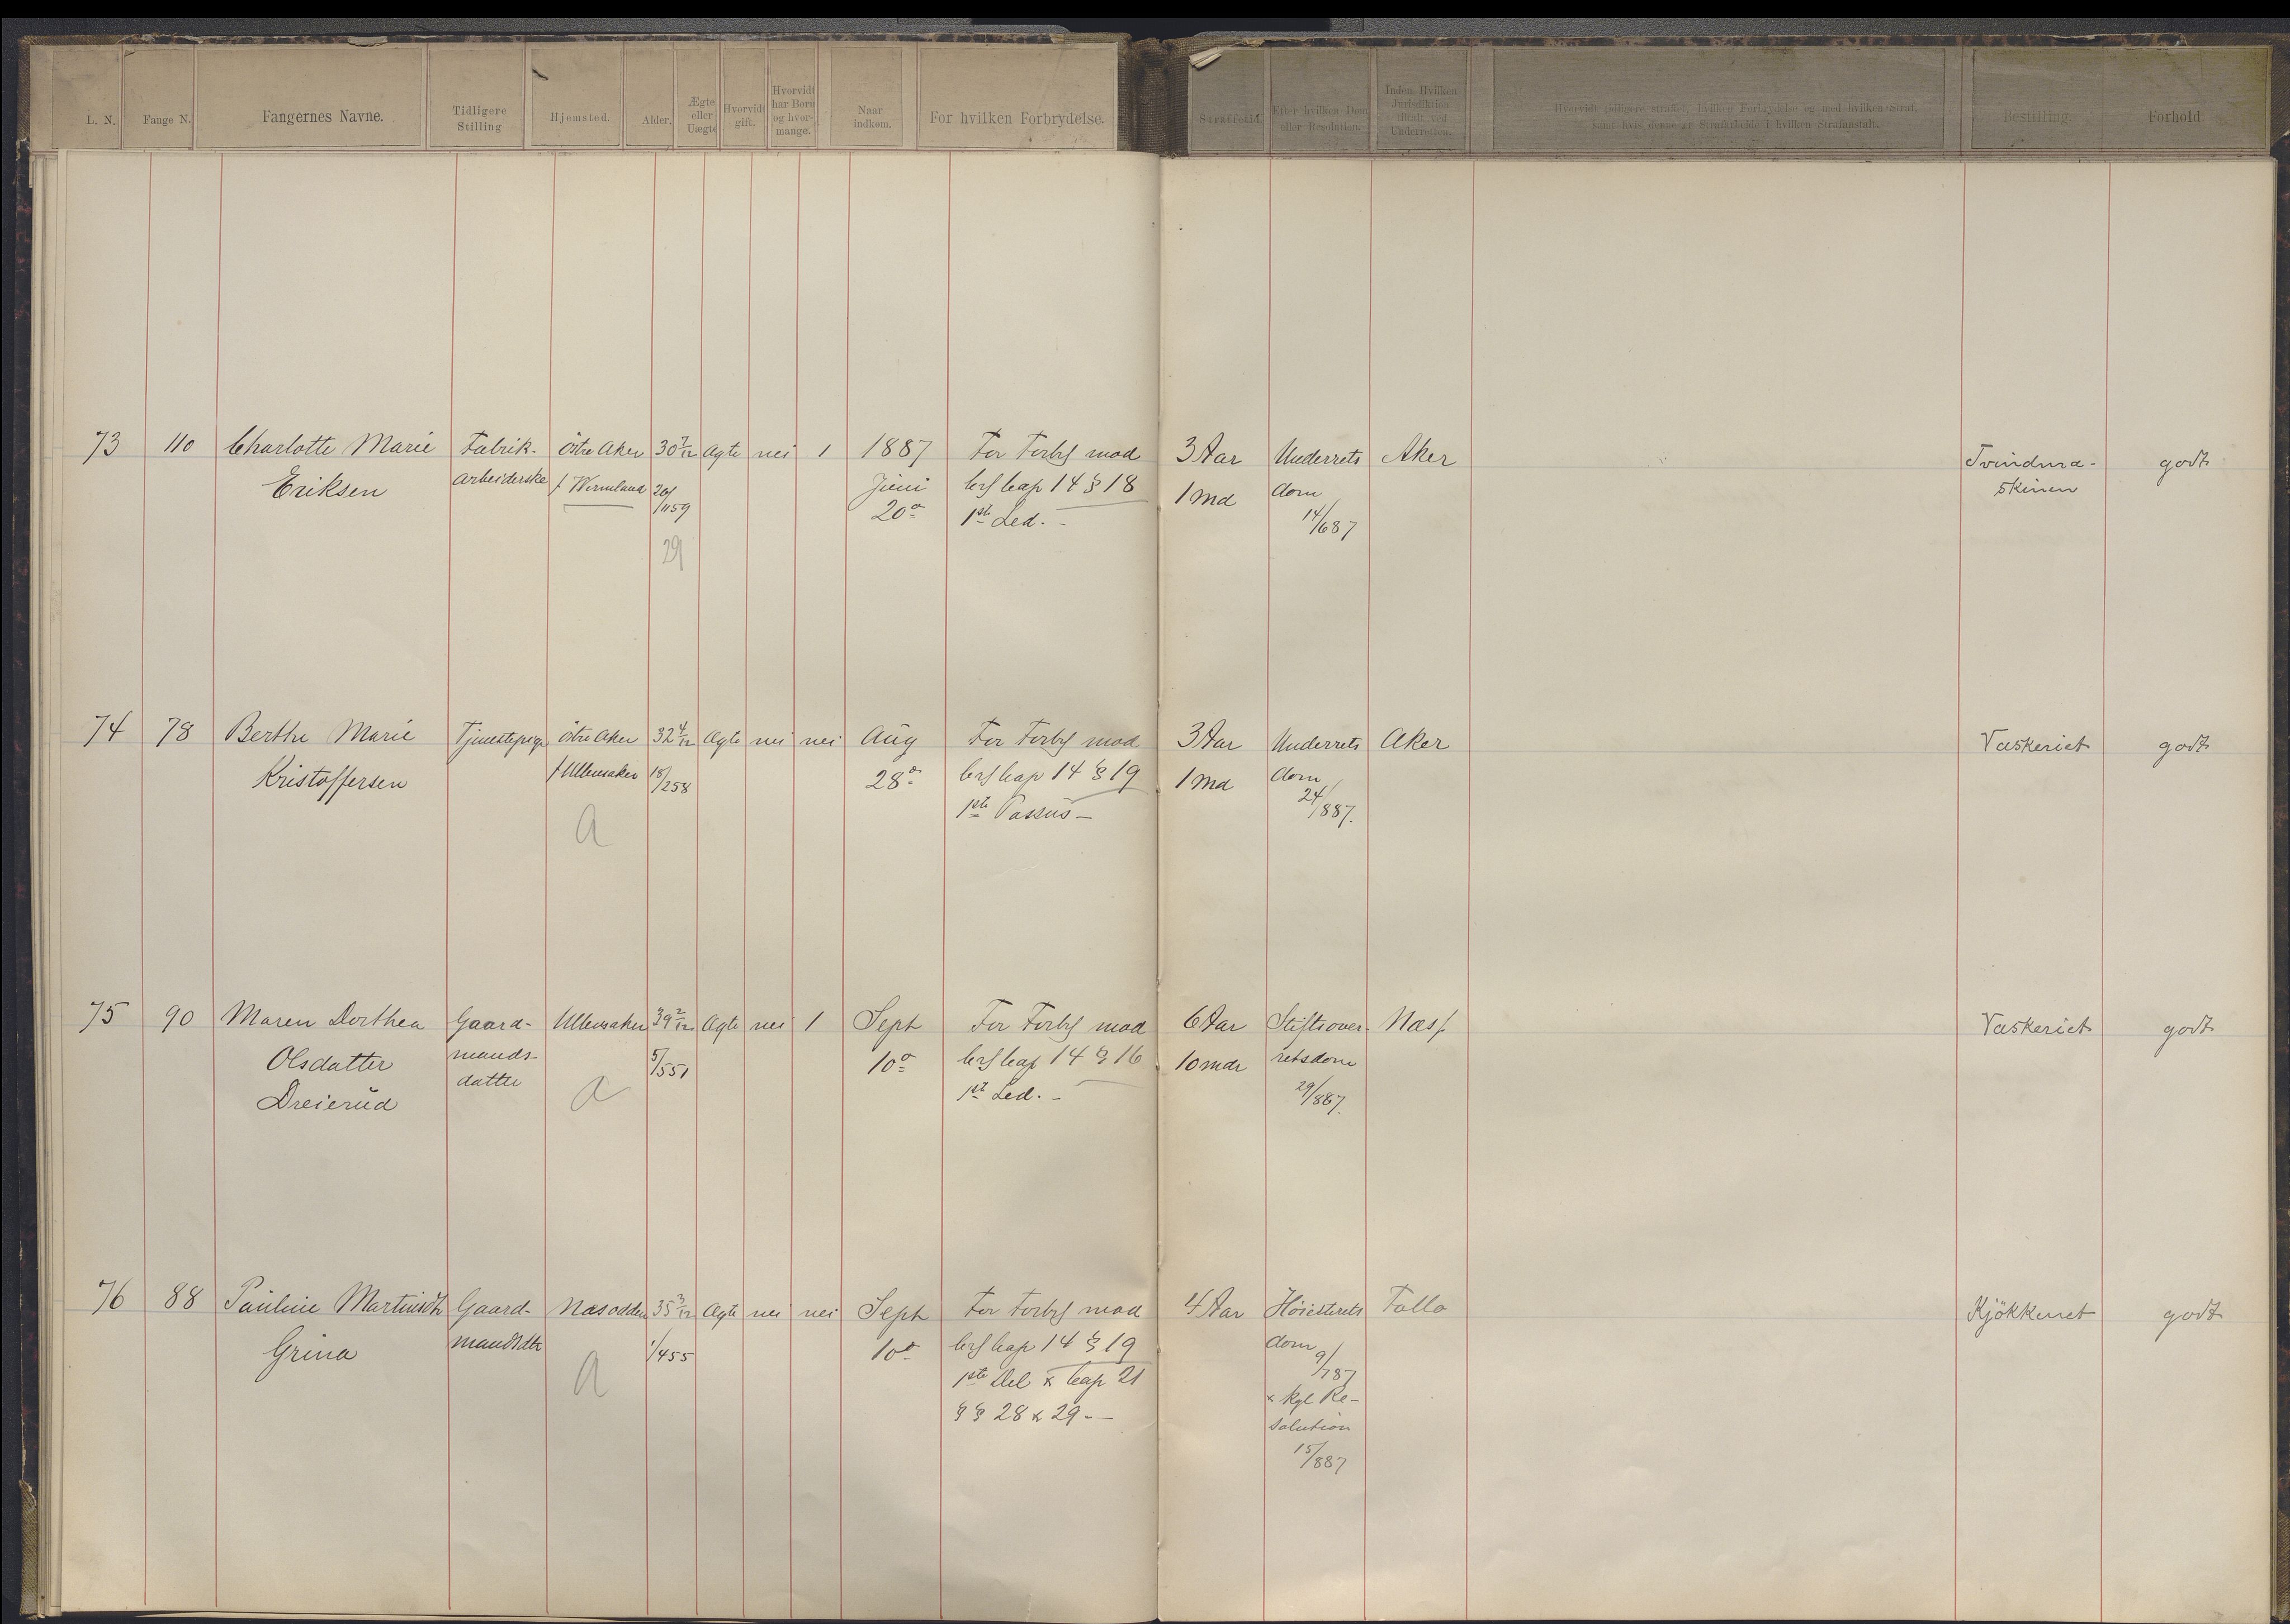 L. N.
Fange N.
Fangernes Navne.
Tidligere
Stilling
Hjemsted.
Alder.
Ægte
eller
Uægte
Hvorvidt
gift.
Hvorvidt
har Børn
og hvor-
mange.
Naar
indkom.
For hvilken Forbrydelse.
Straffetid.
Efter hvilken Dom
eller Resolution.
Inden Hvilken
Jurisdiktion
dømt ved
Underretten.
Hvorvidt tidligere straffet, hvilken Forbrydelse og med hvilken Straf,
samt hvis denne er Strafarbeide i hvilken Strafanstalt.
Bestilling
Forhold
73 110 Charlotte Marie Fabrik- östre Aker 30 7/12 Ægte nei 1 1887 For Forbr mod 3 Aar Underrets Aker Tvindma- godt
Eriksen arbeiderske f Wermland 20/1159 Juni Crl Cap 14 § 18 1 md dom skinen
20de 1ste Led. - 14/687
29
74 78 Berthe Marie Tjenestepige östre Aker 32 4/12 Ægte nei nei Aug For Forbr mod 3 Aar Underrets Aker Vaskeriet godt
Kristoffersen f Ullensaker 18/258 28de Crl Cap 14 § 19 1 md dom
a 1ste Passus - 24/887.
75 90 Maren Dorthea Gaard- Ullensaker 39 2/12 Ægte nei 1 Sept For Forbr mod 6 Aar Stiftsover- Næs Vaskeriet godt
Olsdatter mands- 5/551 10de Crl Cap 14 § 16 10 mdr retsdom
Dreierud datter a 1ste Led. - 29/887.
76 88 Pauline Martinsdtr Gaard- Næsodden 35 3/12 Ægte nei nei Sept For Forbr mod 4 Aar Höiesterets Follo Kjökkenet godt
Grina mandsdtr 1/455 10de Crl Cap 14 § 19 dom
a 1ste Del & Cap 21 9/787
§ § 28 & 29. - & Kgl Re-
solution
15/887